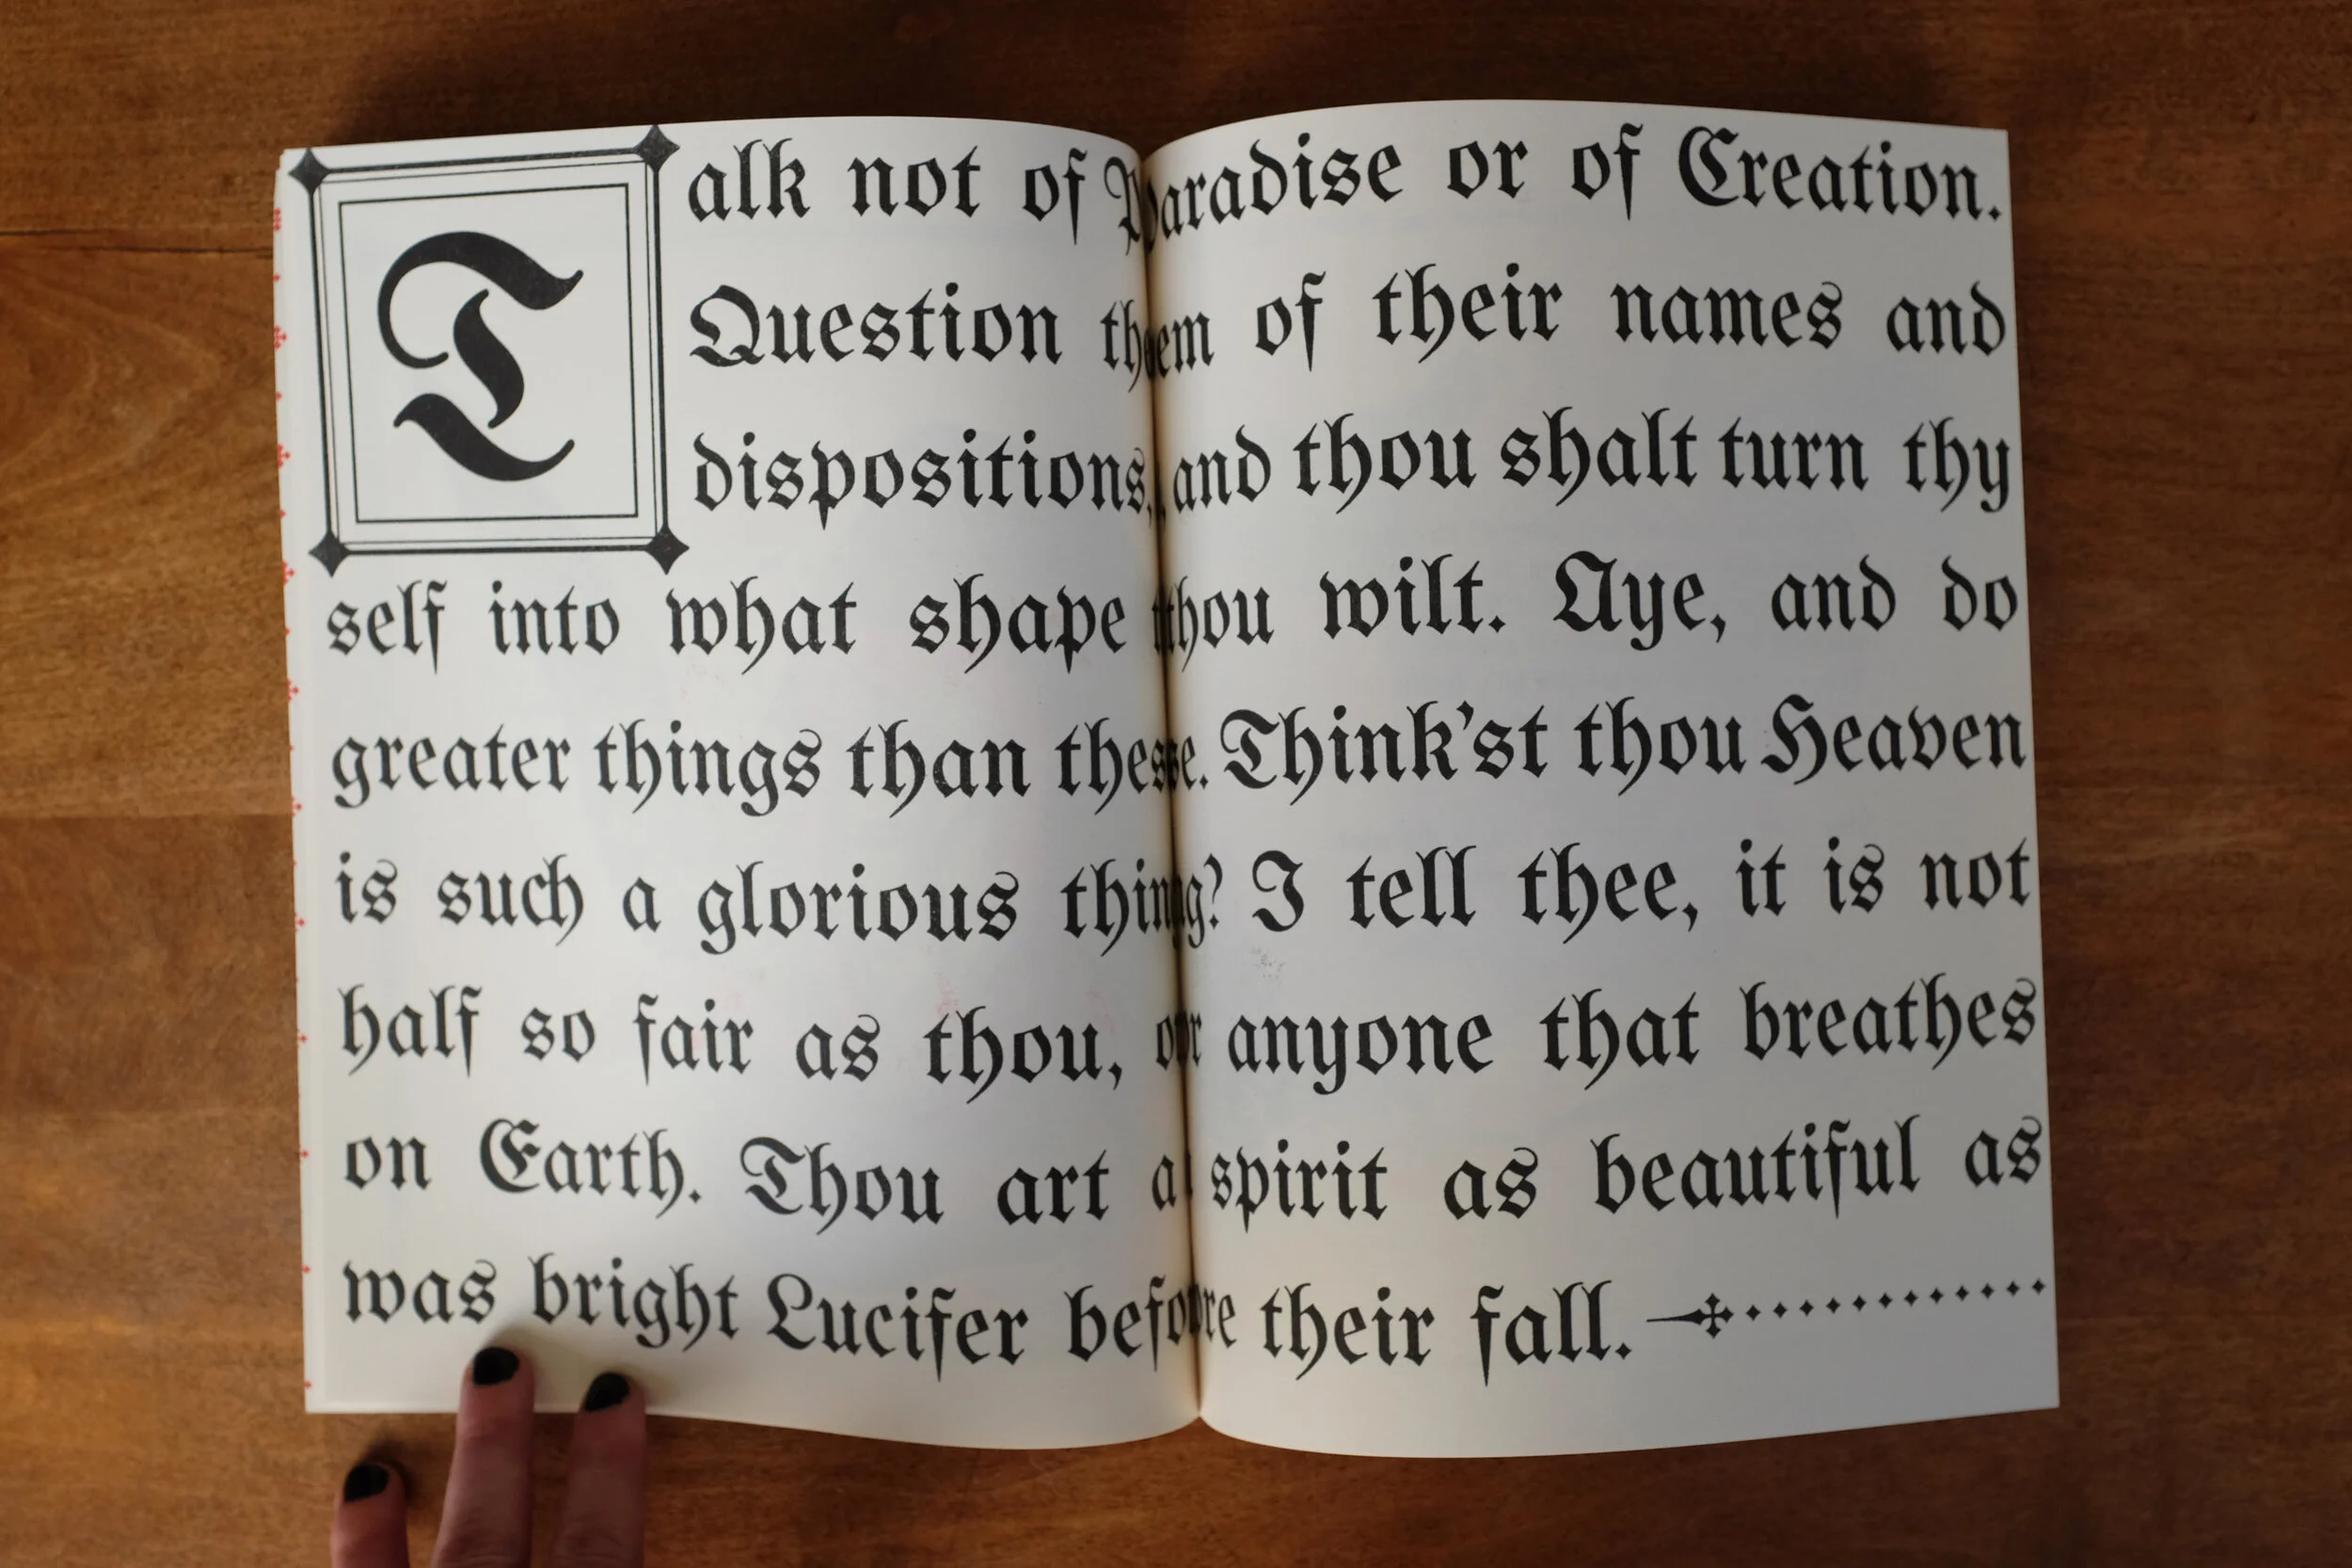 Talk not of Paradise or of Creation.
Question them of their names and
dispositions, and thou shalt turn thy
self into what shape thou wilt. Aye, and do
greater things than these. Think'st thou Heaven
is such a glorious thing? I tell thee, it is not
half so fair as thou, or anyone that breathes
on Earth. Thou art a spirit as beautiful as
was bright Lucifer before their fall.